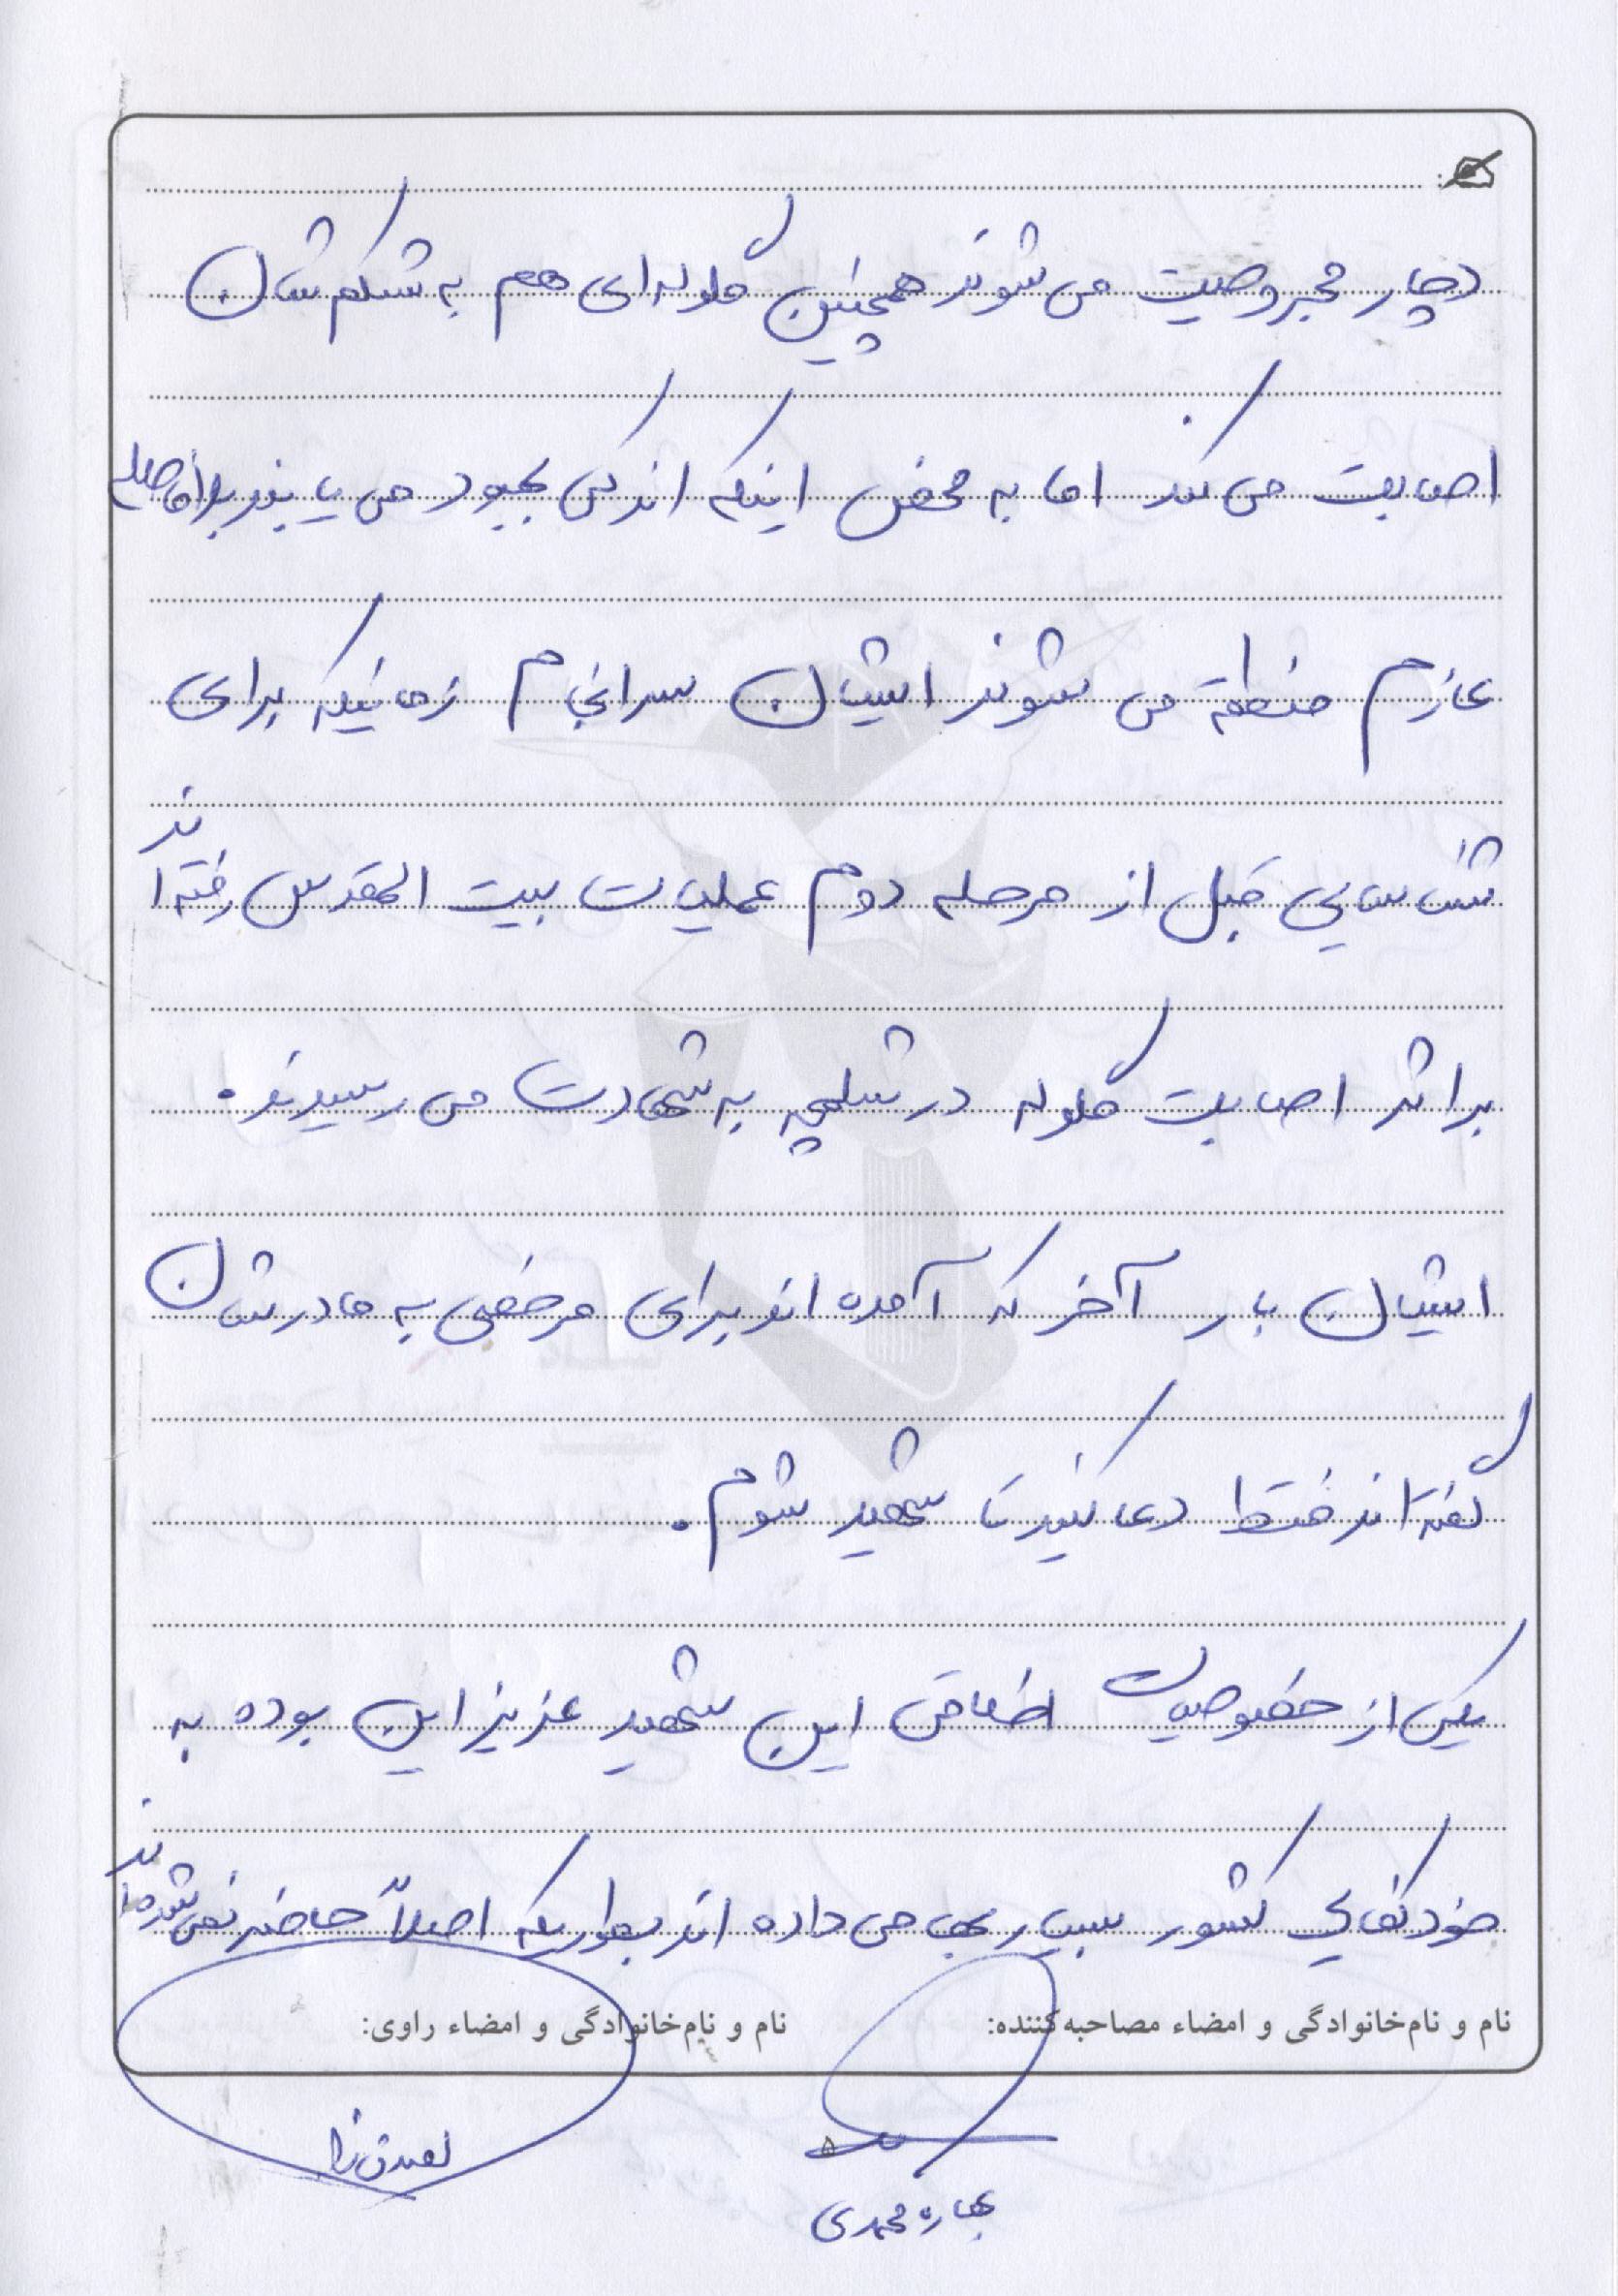 دچار مجروحیت می شوند همچنین گلوله ای هم به شکم شان
اصابت می کند اما به محض اینکه اندکی بهبود می یابند بلافاصله
عازم منطقه می شوند ایشان سرانجام زمانیکه برای
شناسایی قبل از مرحله دوم عملیات بیت المقدس رفته اند
براثر اصابت گلوله در شلمچه به شهادت می رسیدند.
ایشان بار آخر که آمده اند برای مرخصی به مادرشان
گفته اند فقط دعا کنید تا شهید شوم.
یکی از خصوصیات اخلاقی این شهید عزیز این بوده به
خودکفایی کشور بسیار بها می داده اند بطوریکه اصلاً حاضر نمی شده اند
نام و نام‌خانوادگی و امضاء مصاحبه‌کننده: نام و نام‌خانوادگی و امضاء راوی:
بهاره محمدی